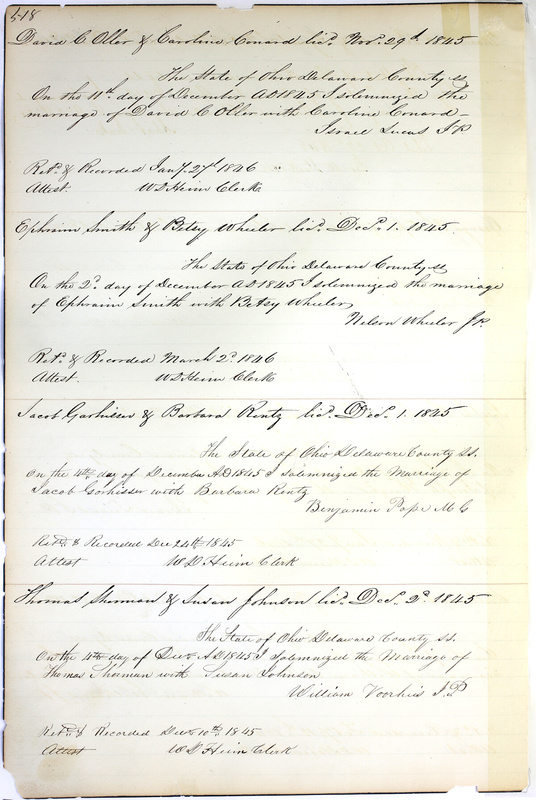 518
David C Oller & Caroline Conard lic.d Nov. 29th 1845
The State of Ohio Delaware County ss
On the 11th day of December AD 1845 I solemnized the
marriage of David C Oller with Caroline Conard –
Israel Lucas JP
Ret.d & Recorded Jany. 27th 1846
Attest. W D Heim Clerk
Ephraim Smith & Betsy Wheeler lic.d Dec. 1. 1845.
The State of Ohio Delaware County ss
On the 2d. day of December AD 1845 I solemnized the marriage
of Ephraim Smith with Betsy Wheeler
Nelson Wheeler J.P.
Ret.d & Recorded March 2d. 1846
Attest. W D Heim Clerk
Jacob Gorhisser & Barbara Rentz lic.d Dec. 1. 1845
The State of Ohio Delaware County ss.
On the 4th day of December A.D 1845 I solemnized the Marriage of
Jacob Gorhisser with Barbara Rentz
Benjamin Pope M G
Retd. & Recorded Dec 24th 1845
Attest W D Heim Clerk
Thomas Shorman & Susan Johnson lic.d Dec. 2d. 1845
The State of Ohio Delaware County ss.
On the 4th day of Decr. A.D 1845 I solemnized the Marriage of
Thomas Shorman with Susan Johnson
William Voorhies J.P.
Retd. & Recorded Decr. 10th. 1845
Attest W D Heim Clerk